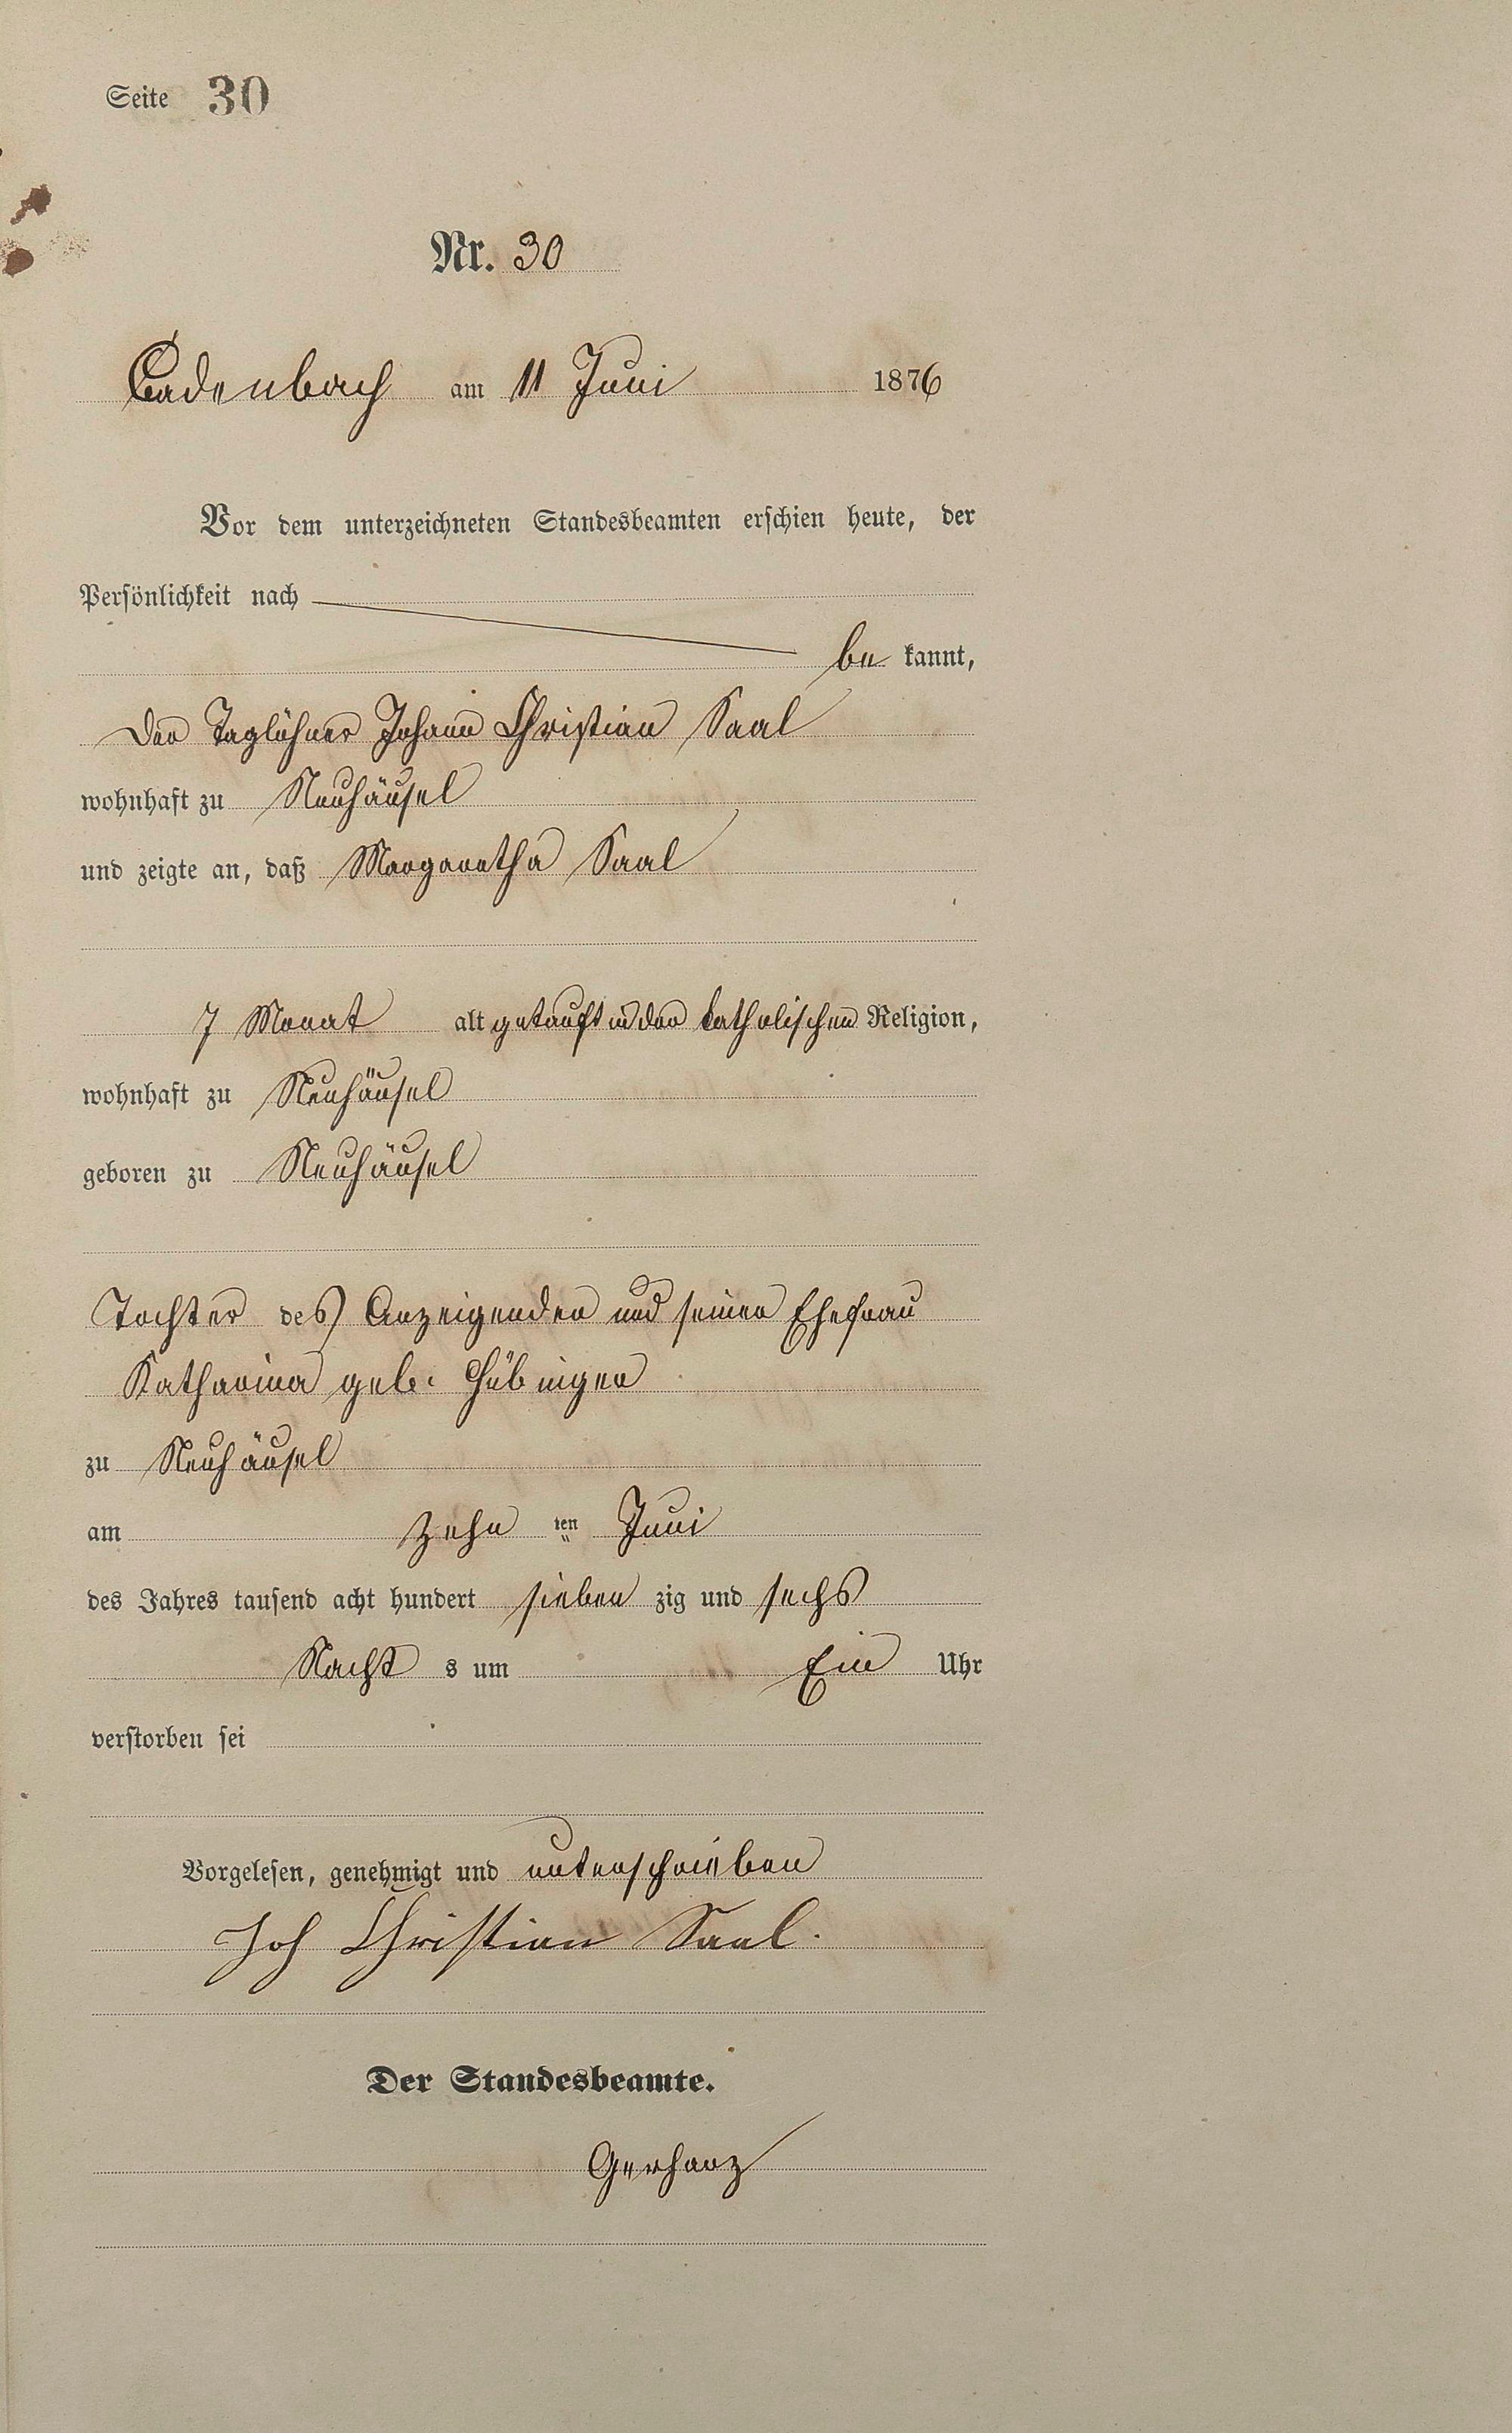 Seite 30
Nr. 30
Cadenbach am 11 Juni 1876
Vor dem unterzeichneten Standesbeamten erschien heute, der
Persönlichkeit nach
be kannt,
der Taglöhner Johann Christian Saal
wohnhaft zu Neuhäusel
und zeigte an, daß Margaretha Saal
7 Monat alt getauft in der katholischen Religion,
wohnhaft zu Neuhäusel
geboren zu Neuhäusel
Tochter des Anzeigenden und seiner Ehefrau
Katharina geb. Hübinger
zu Neuhäusel
am zehn ten Juni
des Jahres tausend acht hundert sieben zig und sechs
Nacht s um Ein Uhr
verstorben sei
Vorgelesen, genehmigt und unterschrieben
Joh Christian Saal.
Der Standesbeamte.
Gerharz